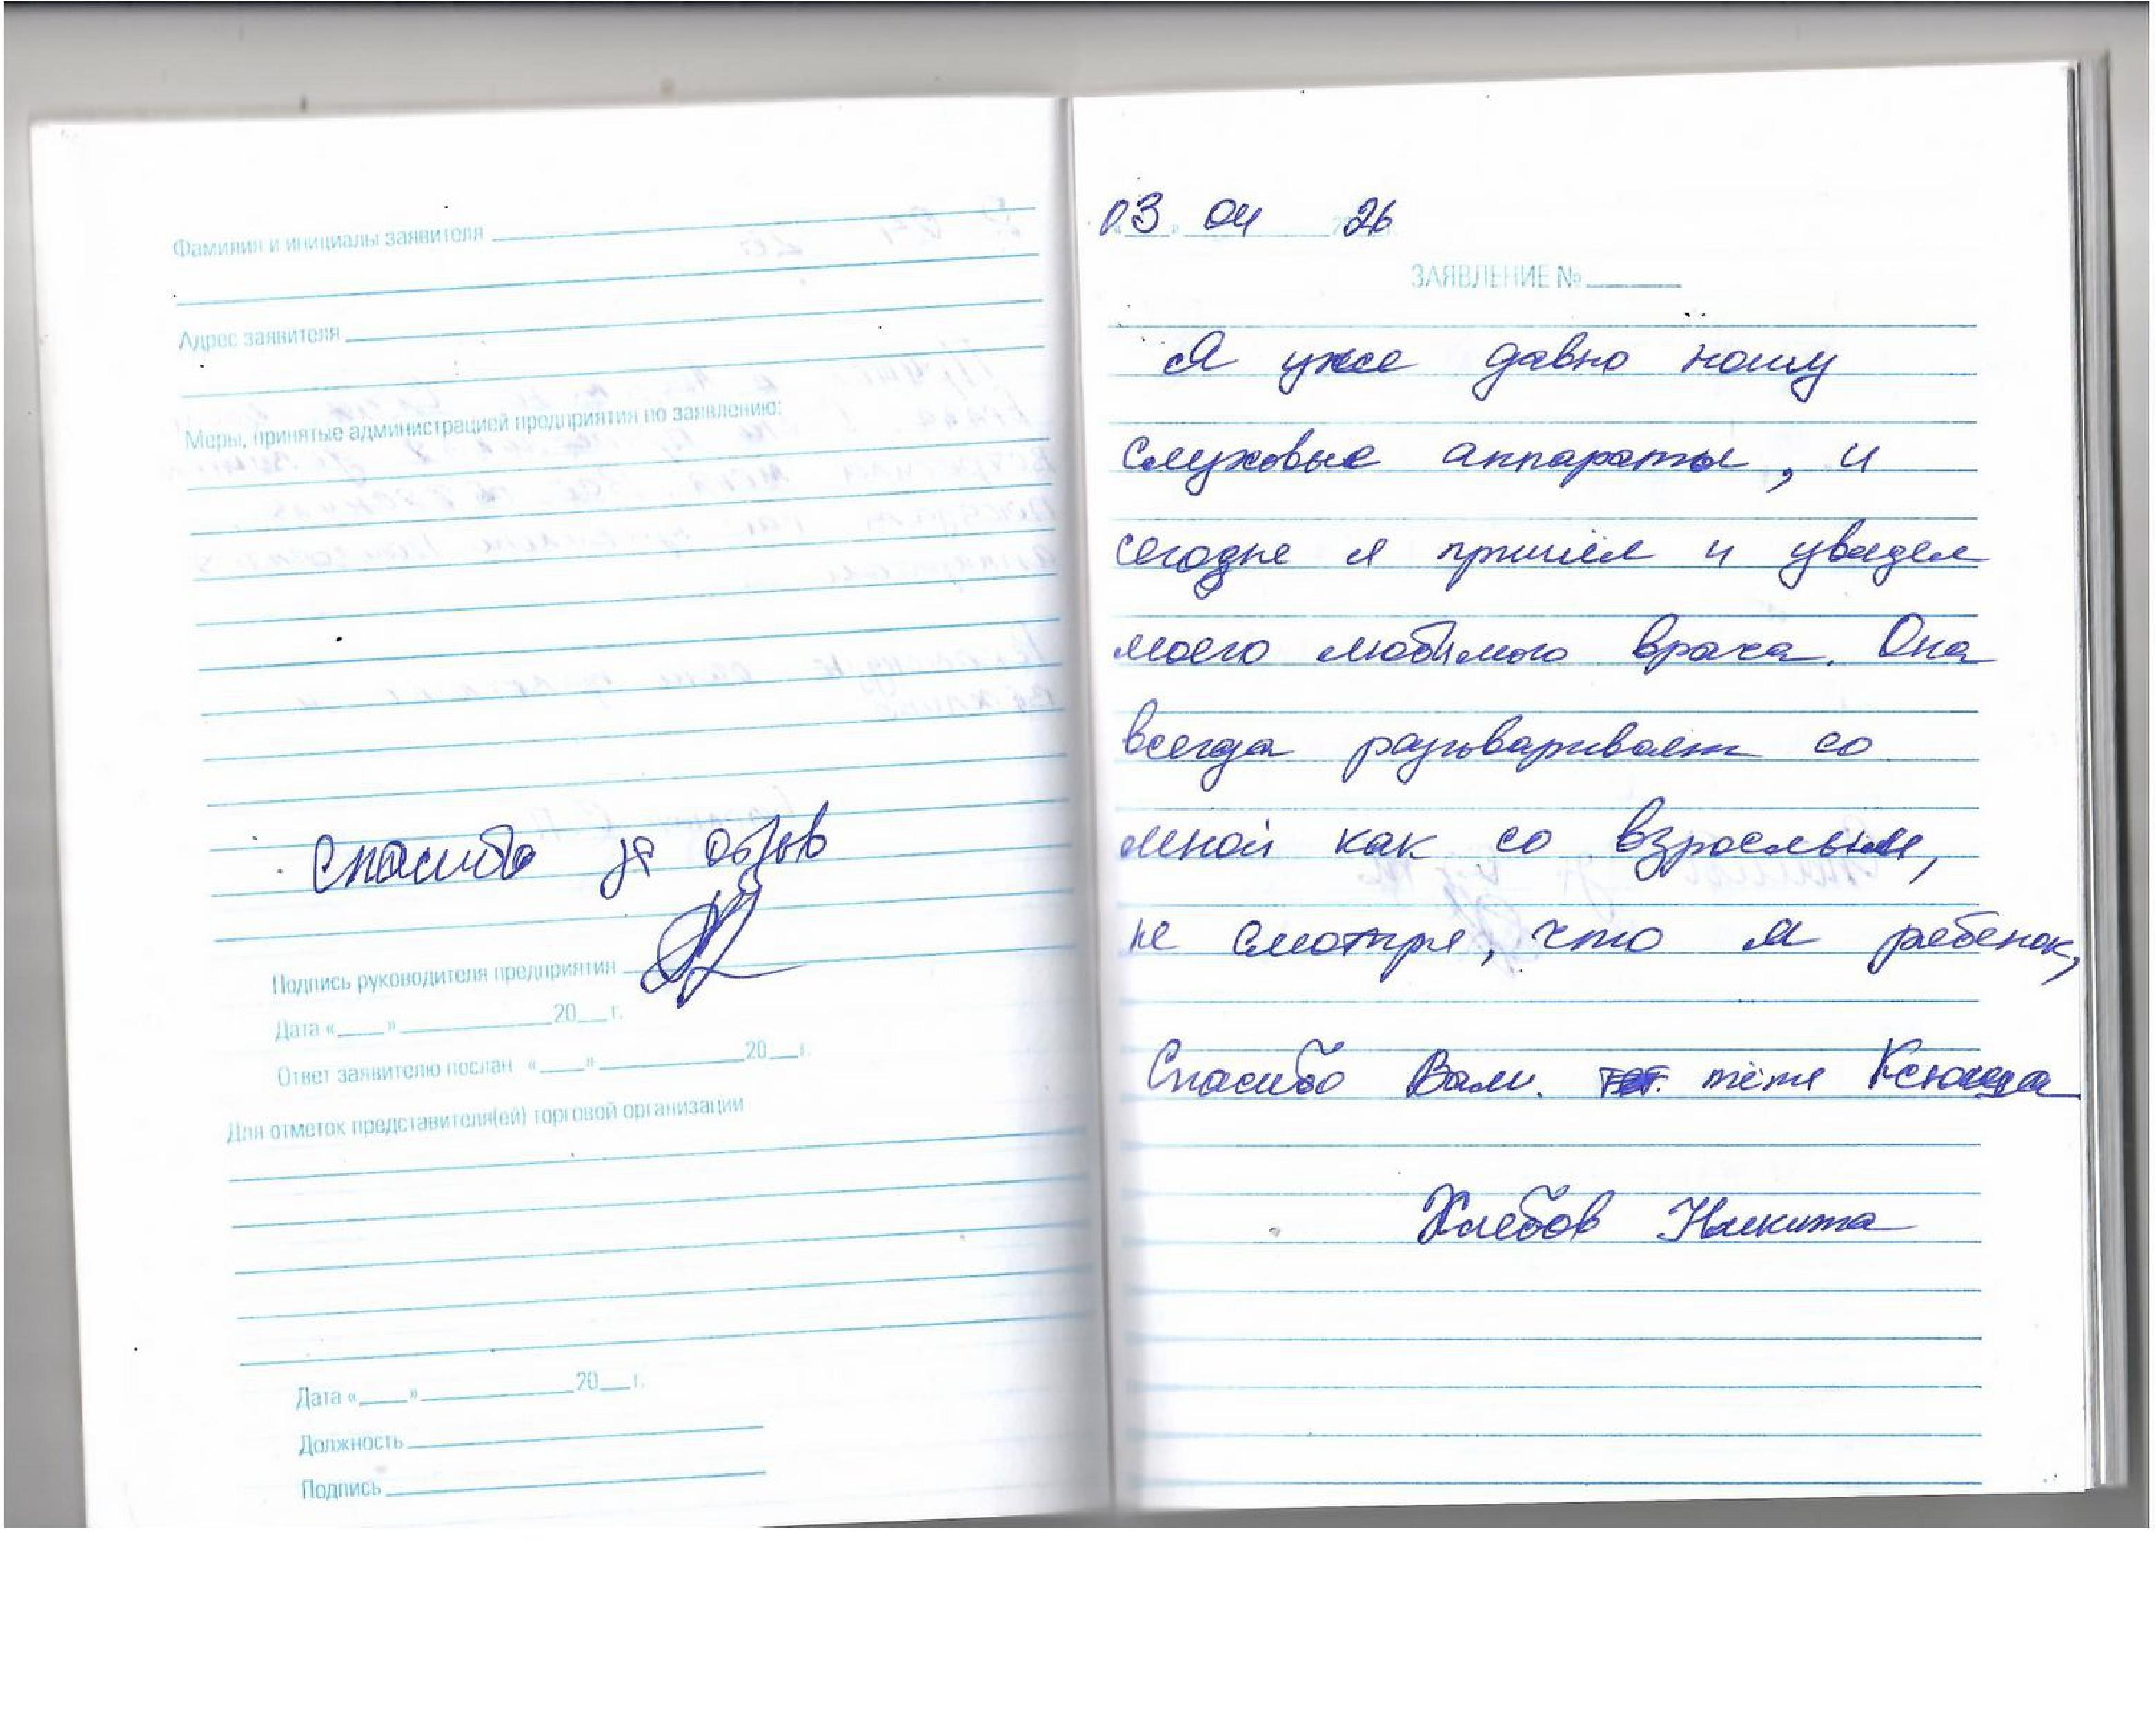 Фамилия и инициалы заявителя
Адрес заявителя
Меры, принятые администрацией предприятия по заявлению:
Спасибо за отзыв
Подпись руководителя предприятия
Дата «___» ___________ 20__ г.
Ответ заявителю послан «___» ___________ 20__ г.
Для отметок представителя(ей) торговой организации
Дата «___» ___________ 20__ г.
Должность
Подпись
03 04 26
ЗАЯВЛЕНИЕ №
Я уже давно ношу
слуховые аппараты, и
сегодне я пришёл и увидел
моего любимого врача. Она
всегда разговаривает со
мной как со взрослым,
не смотря, что я ребенок,
Спасибо Вам. тётя Ксюша
Хлебов Никита